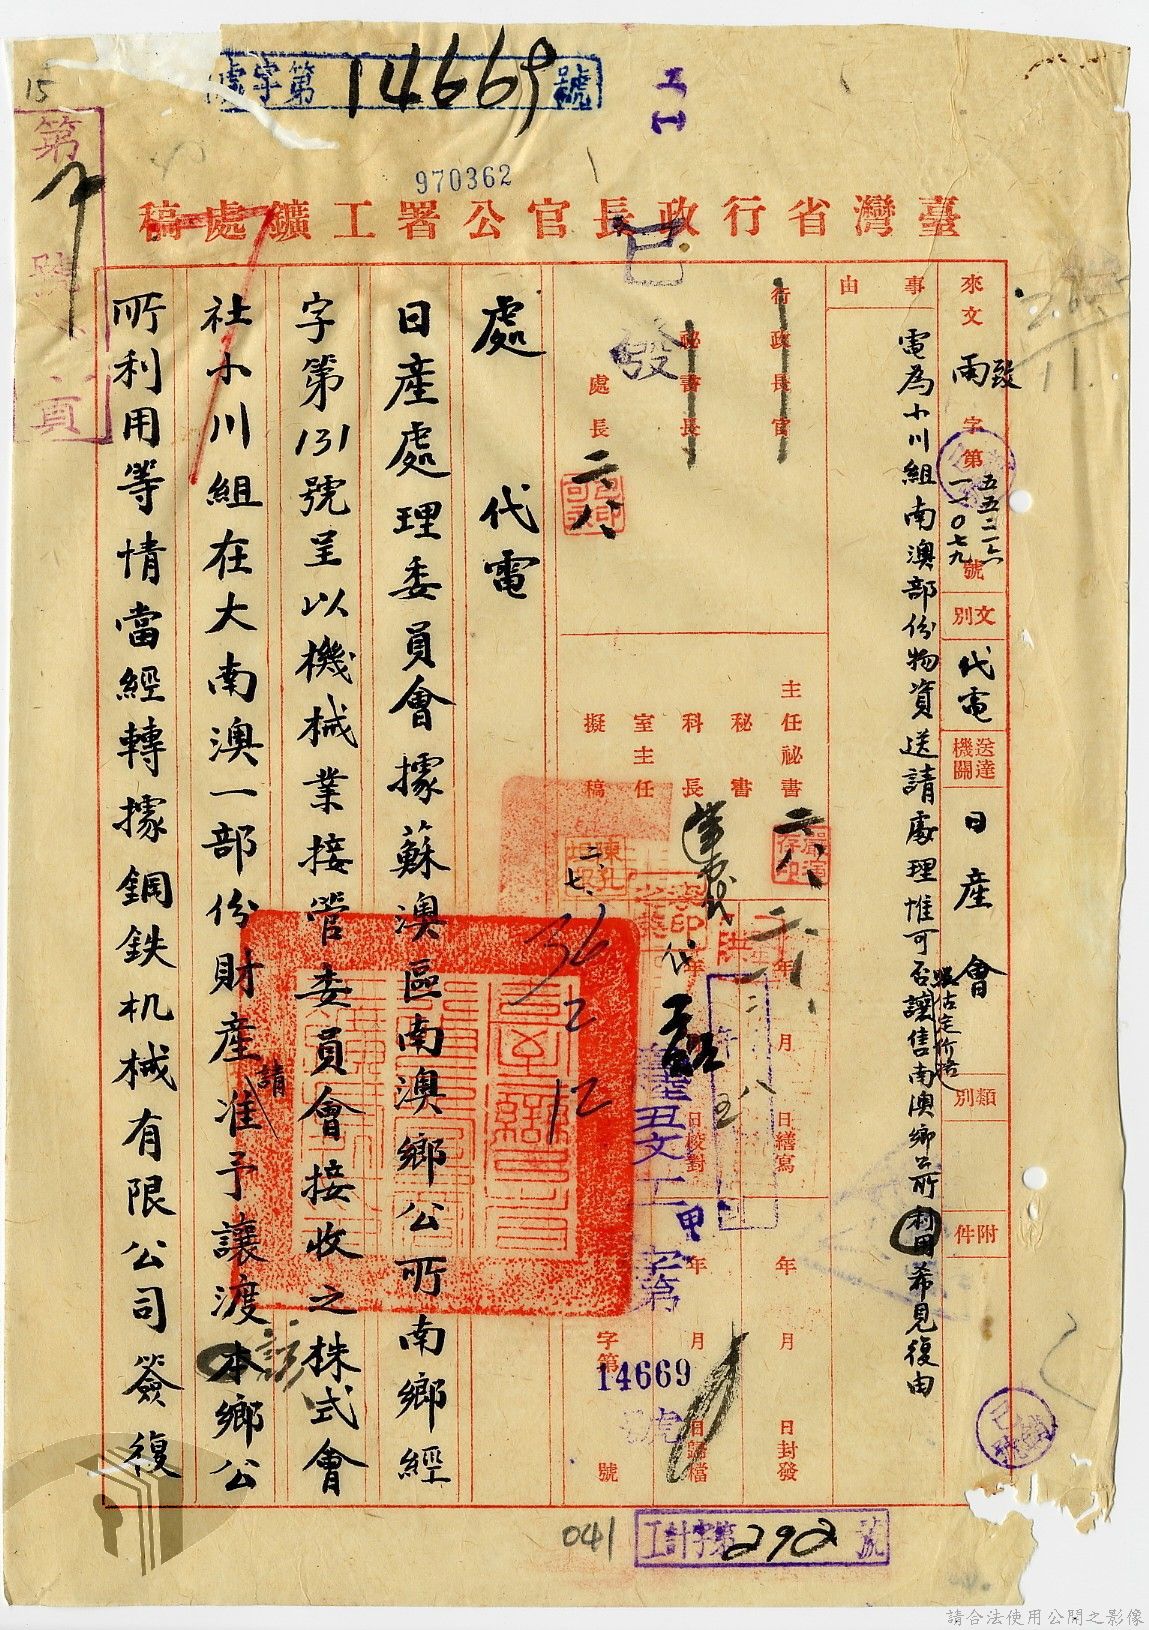 15
處字第14669號
工
970362
臺灣省行政長官公署工鑛處稿
第
號
頁
來文
致雨
字第
五五二六
一一〇七九
號
文別
代電
送達機關
日產會
類別
附件
事由
電為小川組南澳部份物資送請處理惟可否讓售南澳鄉公所利用希見復由
估定价格
行政長官
秘書長
處長
二八
已發
主任秘書
二八
秘書
科長
代
室主任
擬稿
二、七、
36
2
12
年月日繕寫
年月日校對
年月日封發
年月日歸檔
丑文工甲字第
字第14669號
處代電
日產處理委員會據蘇澳區南澳鄉公所南鄉經
字第131號呈以機械業接管委員會接收之株式會
社小川組在大南澳一部份財產准予讓渡本鄉公
請
該
所利用等情當經轉據鋼鉄机械有限公司簽復
041
工計字第292號
請合法使用公開之影像